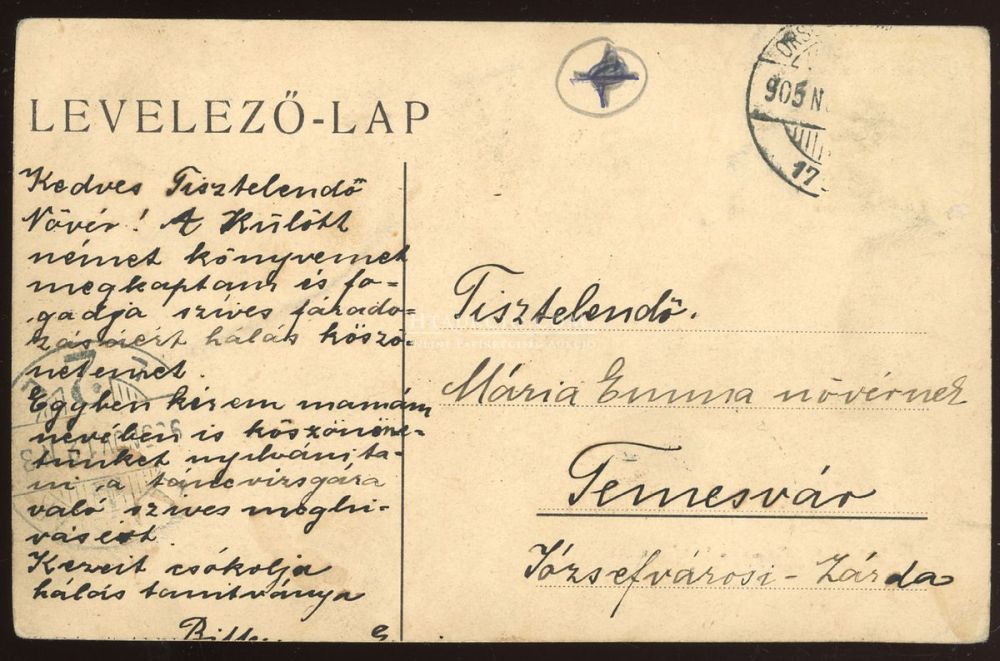 LEVELEZŐ-LAP
905 N
17
Kedves Tisztelendő
Nővér! A Külött
német könyvemet
megkaptam és fo-
gadja szíves fárado-
zásáért hálás köszö
netemet.
Egyben kérem mamám
nevében is köszöne-
tünket nyilvánita-
ni a táncvizsgára
való szives meghi-
vásért.
Kezeit csókolja
hálás tanitványa
Tisztelendő.
Mária Emma nővérnek
Temesvár
Józsefvárosi-Zárda